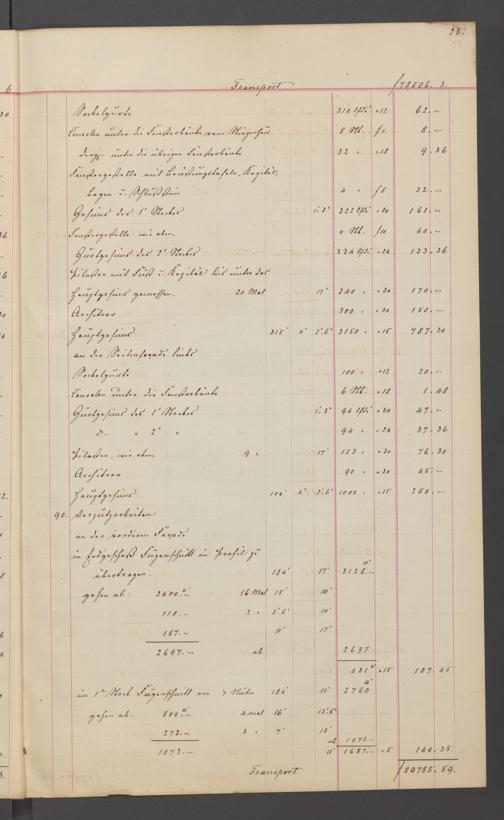 28.
Transport f 78506. 3.
Sockelgurte 310 lfß " 12 62. –
Consolen unter die Fensterbänke vom 8 Stk. f 1. 8. –
dergl. unter die übrigen Fensterbänke 32 " " 18 9. 36
Fenstergestelle mit Brüstungstafeln, Kapitäl,
bogen u. Schlußstein 4 " f 8 32. –
Gesims des 1t Stockes 1'.3" 322 lfß " 30 161. –
Fenstergestelle wie oben 4 Stk. f 10 40. –
Gurtgesims des 2t Stockes 334 lfß " 24 133. 36
Pilaster mit Fuß u. Kapitäl bis unter das
Hauptgesims gemessen. 20 Mal 17' 340 " " 30 170. –
Architrav 300 " " 30 150. –
Hauptgesims 315' 4' 2'.6" 3150 " " 15 787. 30
an der Seitenfaçade links
Sockelgurte 100 " " 12 20. –
Consolen unter die Fensterbänke 6 Stk. " 18 1. 48
Gurtgesims des 1t Stockes 1'.3" 94 lfß " 30 47. –
d. " 2t " 94 " " 24 37. 36
Pilaster, wie oben 9 " 17' 153 " " 30 76. 30
Architrav 90 " " 30 45. –
Hauptgesims 100' 4' 2'.6" 1000 " " 15 250. –
90. Verputzarbeiten
an der vorderen Façade
im Erdgeschoß Fugenschnitt im Profil zu
übertragen. 184' 17' 3128. –
gehen ab: 2400. 16 Mal 15' 10'
110. – 2 " 5'.6" 10'
187. – 11' 17'
2697. – ab 2697
431 " 15 107. 45
im 1ten Stock Fugenschnitt 184' 15' 2760
gehen ab: 800. – 4 mal 16' 12'.6"
273. – 3 " 7' 13'
1073. – ab 1073. –
1687. – " 5 140. 35
Transport f 80785. 59.